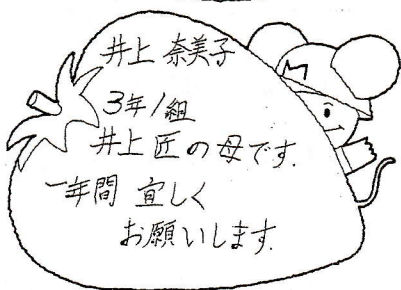 井上 奈美子
M
3年1組
井上 匠の母です.
一年間 宜しく
お願いします.